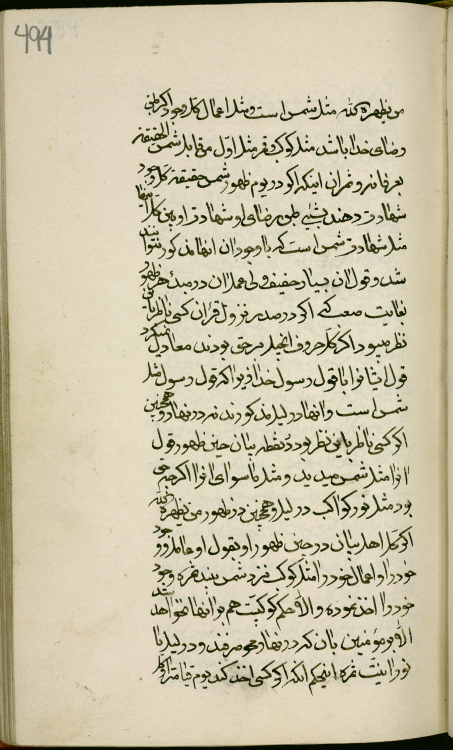 494
من یظهره الله مثل شمس است و مثل اعمال کل وجود اگر طبق
رضای خدا باشد مثل کوکب و قمر مثل اول مقابل شمس الحقیقة
یعرفانه و ثمره آن اینکه اگر در یوم ظهور شمس حقیقت کل وجود
شهادت دهند بشیئی طبق رضای او شهادت او بین کل
مثل شهادت شمس است که با وجود آن انفاذ مذکور نتواند
شد و قول آن بسیار خفیف ولی عمل آن در مبدء هر ظهور
بغایت صعب که اگر در صدر نزول قرآن کسی ناظر باین
نظر میبود اگر کل حروف انجیل بر حق بودند معادل نمیکرد
قول ایشان را با قول رسول خدا زیرا که قول رسول مثل
شمس است و آنها در لیل مذکورند نه در نهار و همچنین
اگر کسی ناظر باین نظر بود در نقطه بیان حین ظهور قول
او را مثل شمس میدید و مثل ماسوای او را اگر حق
بود مثل نور کواکب در لیل و همچنین در ظهور من یظهره الله
اگر کل اهل بیان در حین ظهور او بقول او عامل و وجود
خود را و اعمال خود را مثل کوکب نزد شمس بیند ثمره وجود
خود را اخذ نموده و الا حکم کوکبیت هم بر آنها نخواهد شد
الا بر مؤمنین بآن که در نهار محو صرفند و در لیل با
نورانیت ثمره این حکم آنکه اگر کسی اخذ کند یوم قیامت